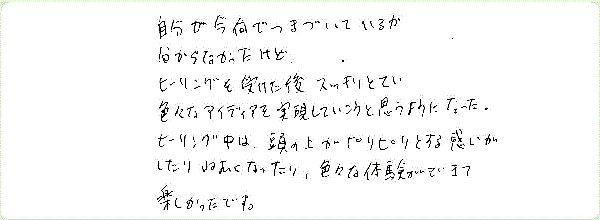 自分が今何でつまづいているか
分からなかったけど、
ヒーリングを受けた後 スッキリとてい
色々なアイディアを実現していこうと思うようになった。
ヒーリング中は、頭の上がピリピリとする感じが
したり ねむくなったり、色々な体験ができて
楽しかったです。